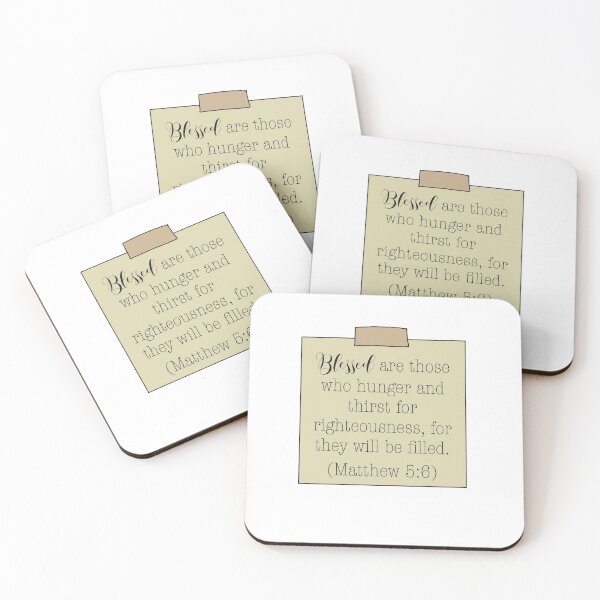 Blessed are those
who hunger and
thirst for
for
Blessed are those
who hunger and
thirst for
righteousness, for
they will be filled.
(Matthew
Blessed are those
who hunger and
thirst for
righteousness, for
they will be filled
(Matthew
Blessed are those
who hunger and
thirst for
righteousness, for
they will be filled.
(Matthew 5:6)